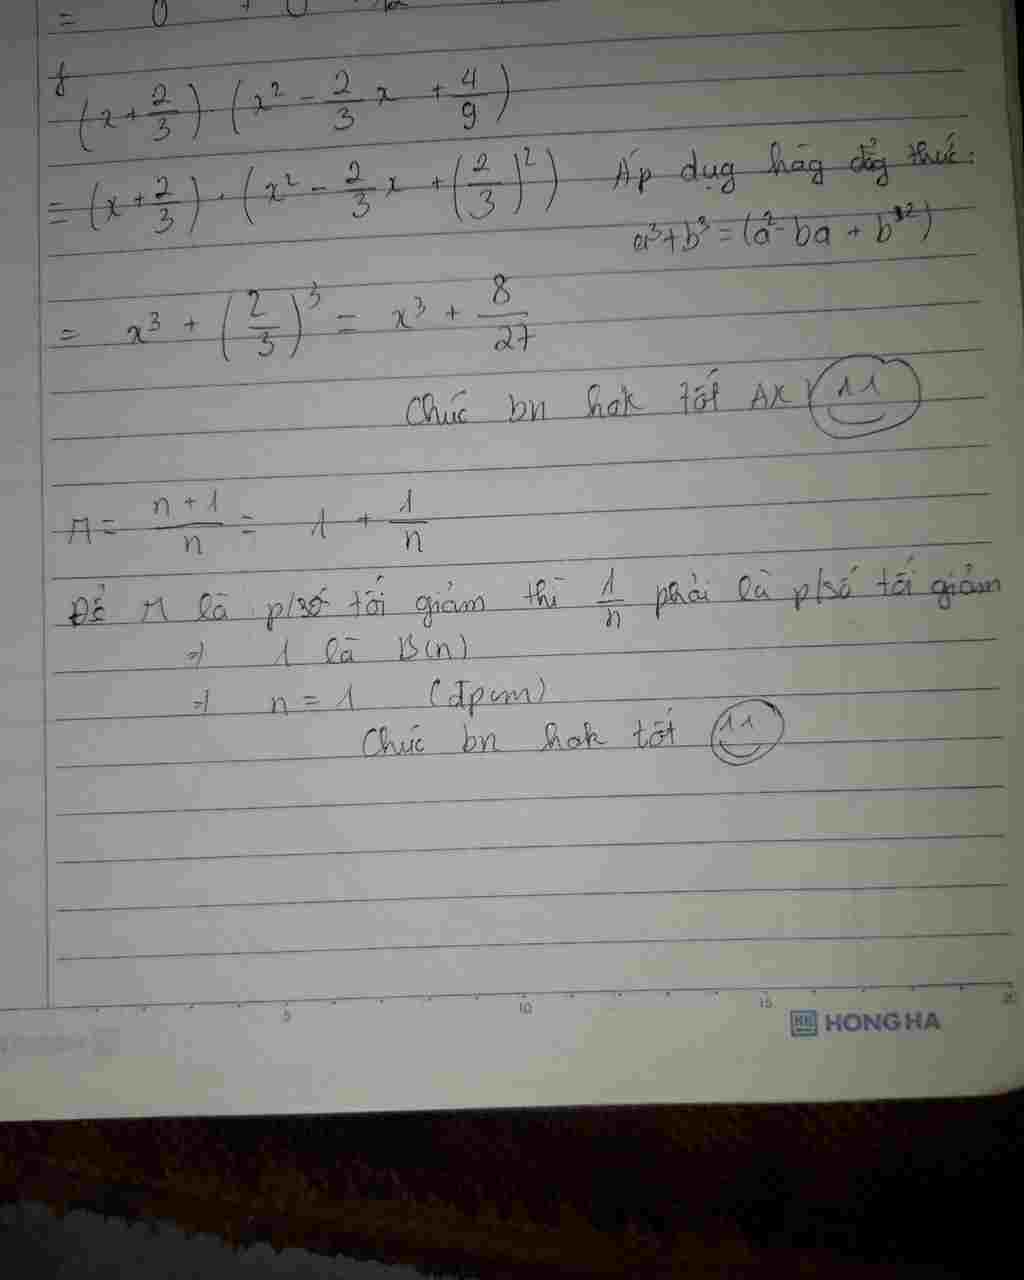 f
(x + 2/3) . (x² - 2/3 x + 4/9)
= (x + 2/3) . (x² - 2/3 x + (2/3)²) Áp dụg hág đẳg thức:
a³ + b³ = (a² - ba + b²)
= x³ + (2/3)³ = x³ + 8/27
Chúc bn hok tốt
A = n + 1 / n = 1 + 1/n
Để A là p/số tối giảm thì 1/n phải là p/số tối giảm
=> 1 là B(n)
=> n = 1 (đpcm)
Chúc bn hok tốt
5 10 15 20
HONG HA